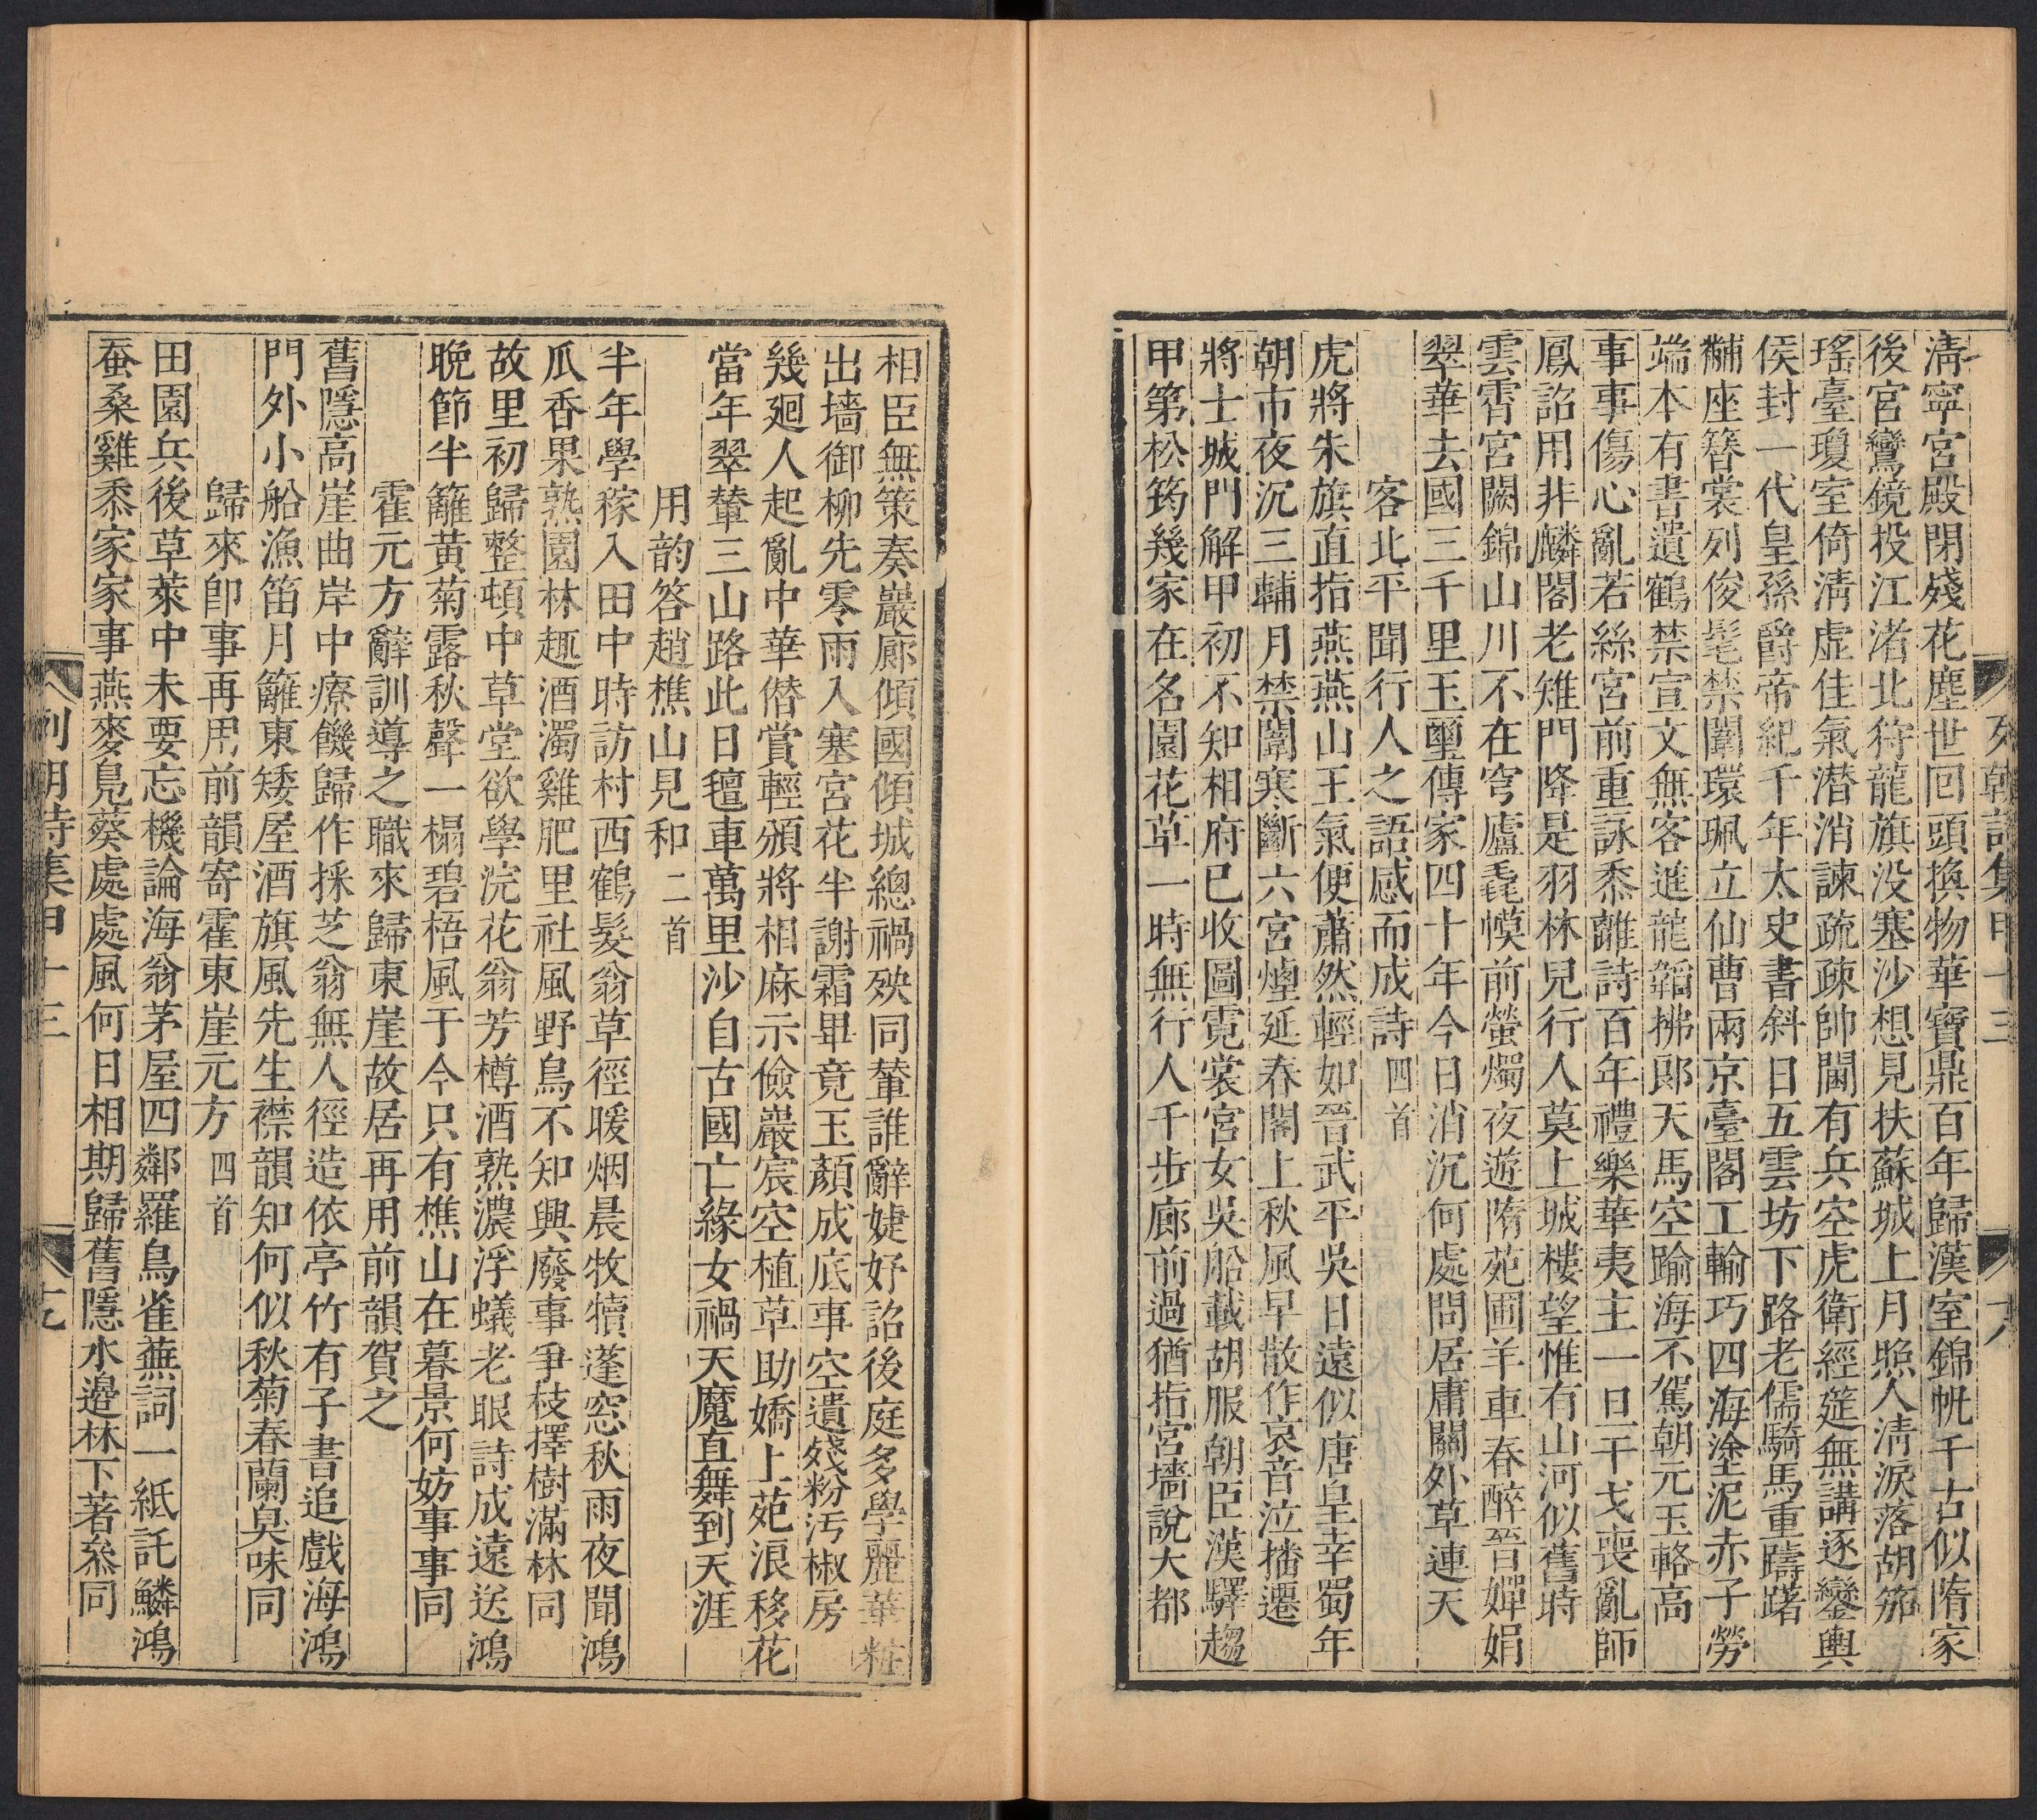 清寧宮殿閉殘花塵世回頭換物華寶鼎百年歸漢室錦帆千古似隋家
後宮鸞鏡投江渚北狩龍旗没塞沙想見扶蘇城上月照人清淚落胡笳
瑤臺瓊室倚清虛佳氣潛消諫疏疎帥閫有兵空虎衛經筵無講逐鑾輿
侯封一代皇孫爵帝紀千年太史書斜日五雲坊下路老儒騎馬重躊躇
黼座簪裳列俊髦禁闈環珮立仙曹兩京臺閣工輸巧四海塗泥赤子勞
端本有書遺鶴禁宣文無客進龍韜拂郎天馬空踰海不駕朝元玉輅高
事事傷心亂若絲宮前重詠黍離詩百年禮樂華夷主一日干戈喪亂師
鳳詔用非麟閣老雉門降是羽林兒行人莫上城樓望惟有山河似舊時
雲霄宮闕錦山川不在穹廬毳幙前螢燭夜遊隋苑圃羊車春醉晉嬋娟
翠華去國三千里玉璽傳家四十年今日消沉何處問居庸關外草連天
客北平聞行人之語感而成詩四首
虎將朱旗直指燕燕山王氣便蕭然輕如晉武平吳日遠似唐皇幸蜀年
朝市夜沉三輔月禁闈寒斷六宮煙延春閣上秋風早散作哀音泣播遷
將士城門解甲初不知相府已收圖霓裳宮女吳船載胡服朝臣漢驛趨
甲第松筠幾家在名園花草一時無行人千步廊前過猶指宮墻說大都
列朝詩集甲十三
相臣無策奏巖廊傾國傾城總禍殃同輦誰辭婕妤詔後庭多學麗華粧
出墻御柳先零雨入塞宮花半謝霜畢竟玉顏成底事空遺殘粉汚椒房
幾廻人起亂中華僣賞輕頒將相麻示儉嚴宸空植草助嬌上苑浪移花
當年翠輦三山路此日氊車萬里沙自古國亡緣女禍天魔直舞到天涯
用韵答趙樵山見和二首
半年學稼入田中時訪村西鶴髮翁草徑暖烟晨牧犢蓬窓秋雨夜聞鴻
瓜香果熟園林趣酒濁雞肥里社風野鳥不知興廢事爭枝擇樹滿林同
故里初歸整頓中草堂欲學浣花翁芳樽酒熟濃浮蟻老眼詩成遠送鴻
晚節半籬黃菊露秋聲一榻碧梧風于今只有樵山在暮景何妨事事同
霍元方辭訓導之職來歸東崖故居再用前韻賀之
舊隱高崖曲岸中療饑歸作採芝翁無人徑造依亭竹有子書追戲海鴻
門外小船漁笛月籬東矮屋酒旗風先生襟韻知何似秋菊春蘭臭味同
歸來卽事再用前韻寄霍東崖元方四首
田園兵後草萊中未要忘機論海翁茅屋四鄰羅鳥雀蕪詞一紙託鱗鴻
蚕桑雞黍家家事燕麥鳧葵處處風何日相期歸舊隱水邊林下著叅同
列朝詩集甲十三